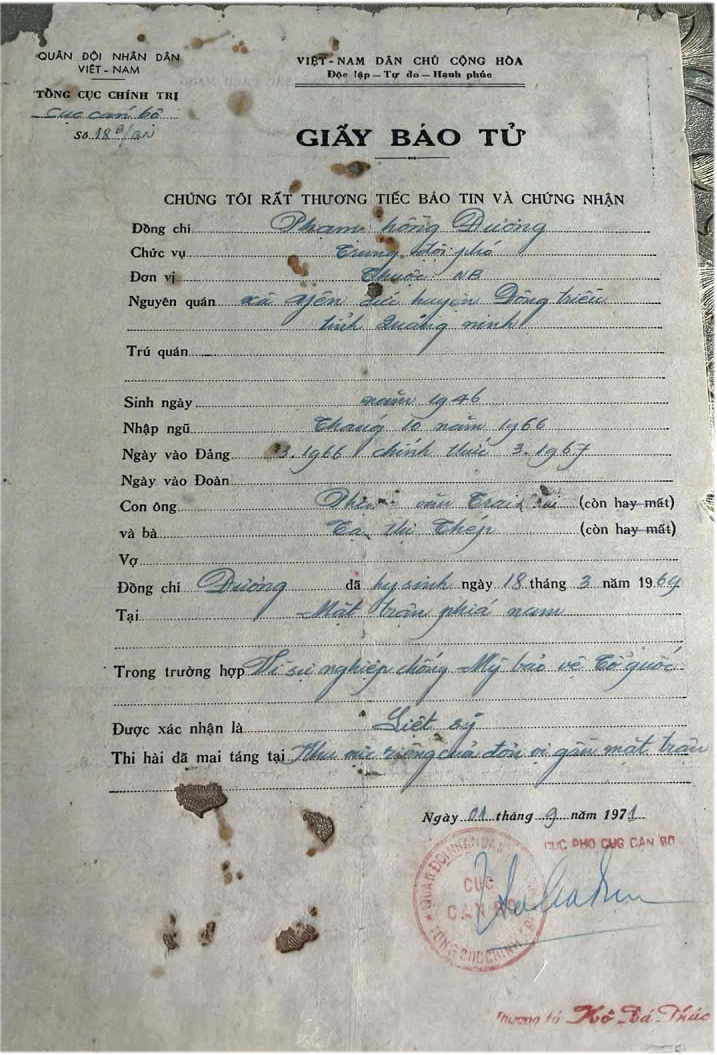 QUÂN ĐỘI NHÂN DÂN
VIỆT-NAM
TỔNG CỤC CHÍNH TRỊ
Cục cán bộ
Số 18B/QN
VIỆT-NAM DÂN CHỦ CỘNG HÒA
Độc lập — Tự do — Hạnh phúc
GIẤY BÁO TỬ
CHÚNG TÔI RẤT THƯƠNG TIẾC BÁO TIN VÀ CHỨNG NHẬN
Đồng chí Phạm hồng Dương
Chức vụ Trung đội phó
Đơn vị Thuộc NB
Nguyên quán xã yên đức huyện Đông triều
tỉnh Quảng ninh
Trú quán
Sinh ngày năm 1946
Nhập ngũ Tháng 10 năm 1966
Ngày vào Đảng 3.1966 chính thức 3.1967
Ngày vào Đoàn
Con ông văn (còn hay mất)
và bà Tạ thị Thép (còn hay mất)
Vợ
Đồng chí Dương đã hy sinh ngày 18 tháng 3 năm 1969
Tại Mặt trận phía nam
Trong trường hợp Vì sự nghiệp chống Mỹ bảo vệ Tổ quốc
Được xác nhận là Liệt sỹ
Thi hài đã mai táng tại Khu vực riêng của đơn vị gần mặt trận
Ngày 01 tháng 9 năm 1971
CỤC PHÓ CỤC CÁN BỘ
QUÂN ĐỘI NHÂN DÂN
CỤC
CÁN BỘ
TỔNG CỤC CHÍNH TRỊ
Thượng tá Hồ Bá Phúc